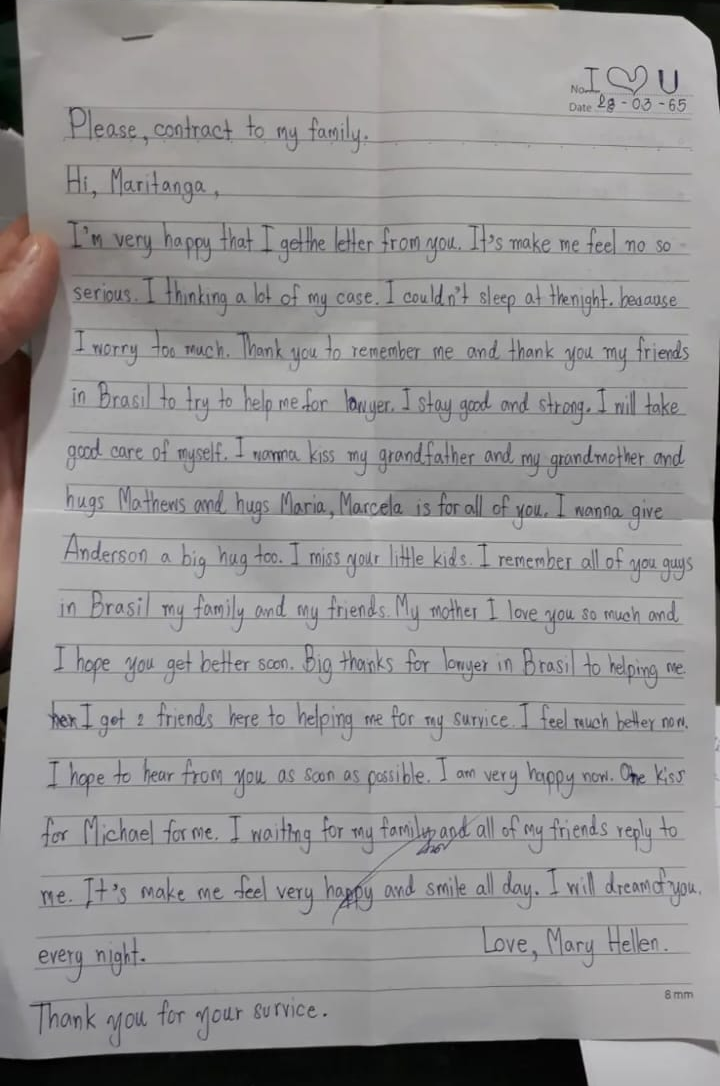 No. I ♡ U
Date 28-03-65
Please, contract to my family.
Hi, Maritanga,
I'm very happy that I getthe letter from you. It's make me feel no so
serious. I thinking a lot of my case. I couldn't sleep at thenight. beaause
I worry too much. Thank you to remember me and thank you my friends
in Brasil to try to help me for lowyer. I stay good and strong. I will take
good care of myself. I wanna kiss my grandfather and my grandmother and
hugs Mathews and hugs Maria, Marcela is for all of you. I wanna give
Anderson a big hug too. I miss your little kids. I remember all of you guys
in Brasil my family and my friends. My mother I love you so much and
I hope you get better soon. Big thanks for lowyer in Brasil to helping me.
I got 2 friends here to helping me for my survice. I feel much better now.
I hope to hear from you as soon as possible. I am very happy now. One kiss
for Michael for me. I waiting for my family and all of my friends reply to
me. It's make me feel very happy and smile all day. I will dreamof you.
every night. Love, Mary Hellen.
8 mm
Thank you for your survice.